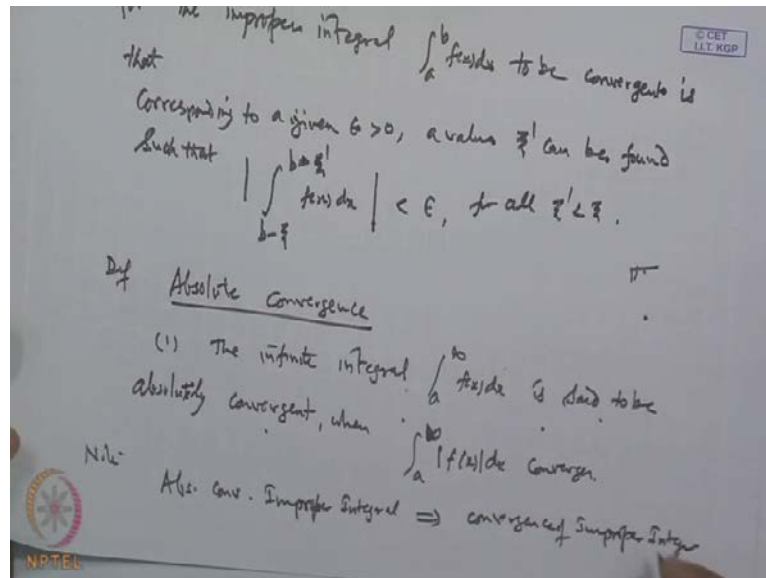 for the improper integral ∫_a^b f(x)dx to be convergent is
© CET
I.I.T. KGP
that
Corresponding to a given ε > 0, a value ξ' can be found
Such that | ∫_{b-ξ}^{b-ξ'} f(x) dx | < ε, for all ξ' < ξ.
Def Absolute Convergence
(1) The infinite integral ∫_a^∞ f(x)dx is said to be
absolutely convergent, when ∫_a^∞ |f(x)|dx Converges.
Note Abs. Conv. Improper Integral ⇒ convergence of Improper Integr
NPTEL